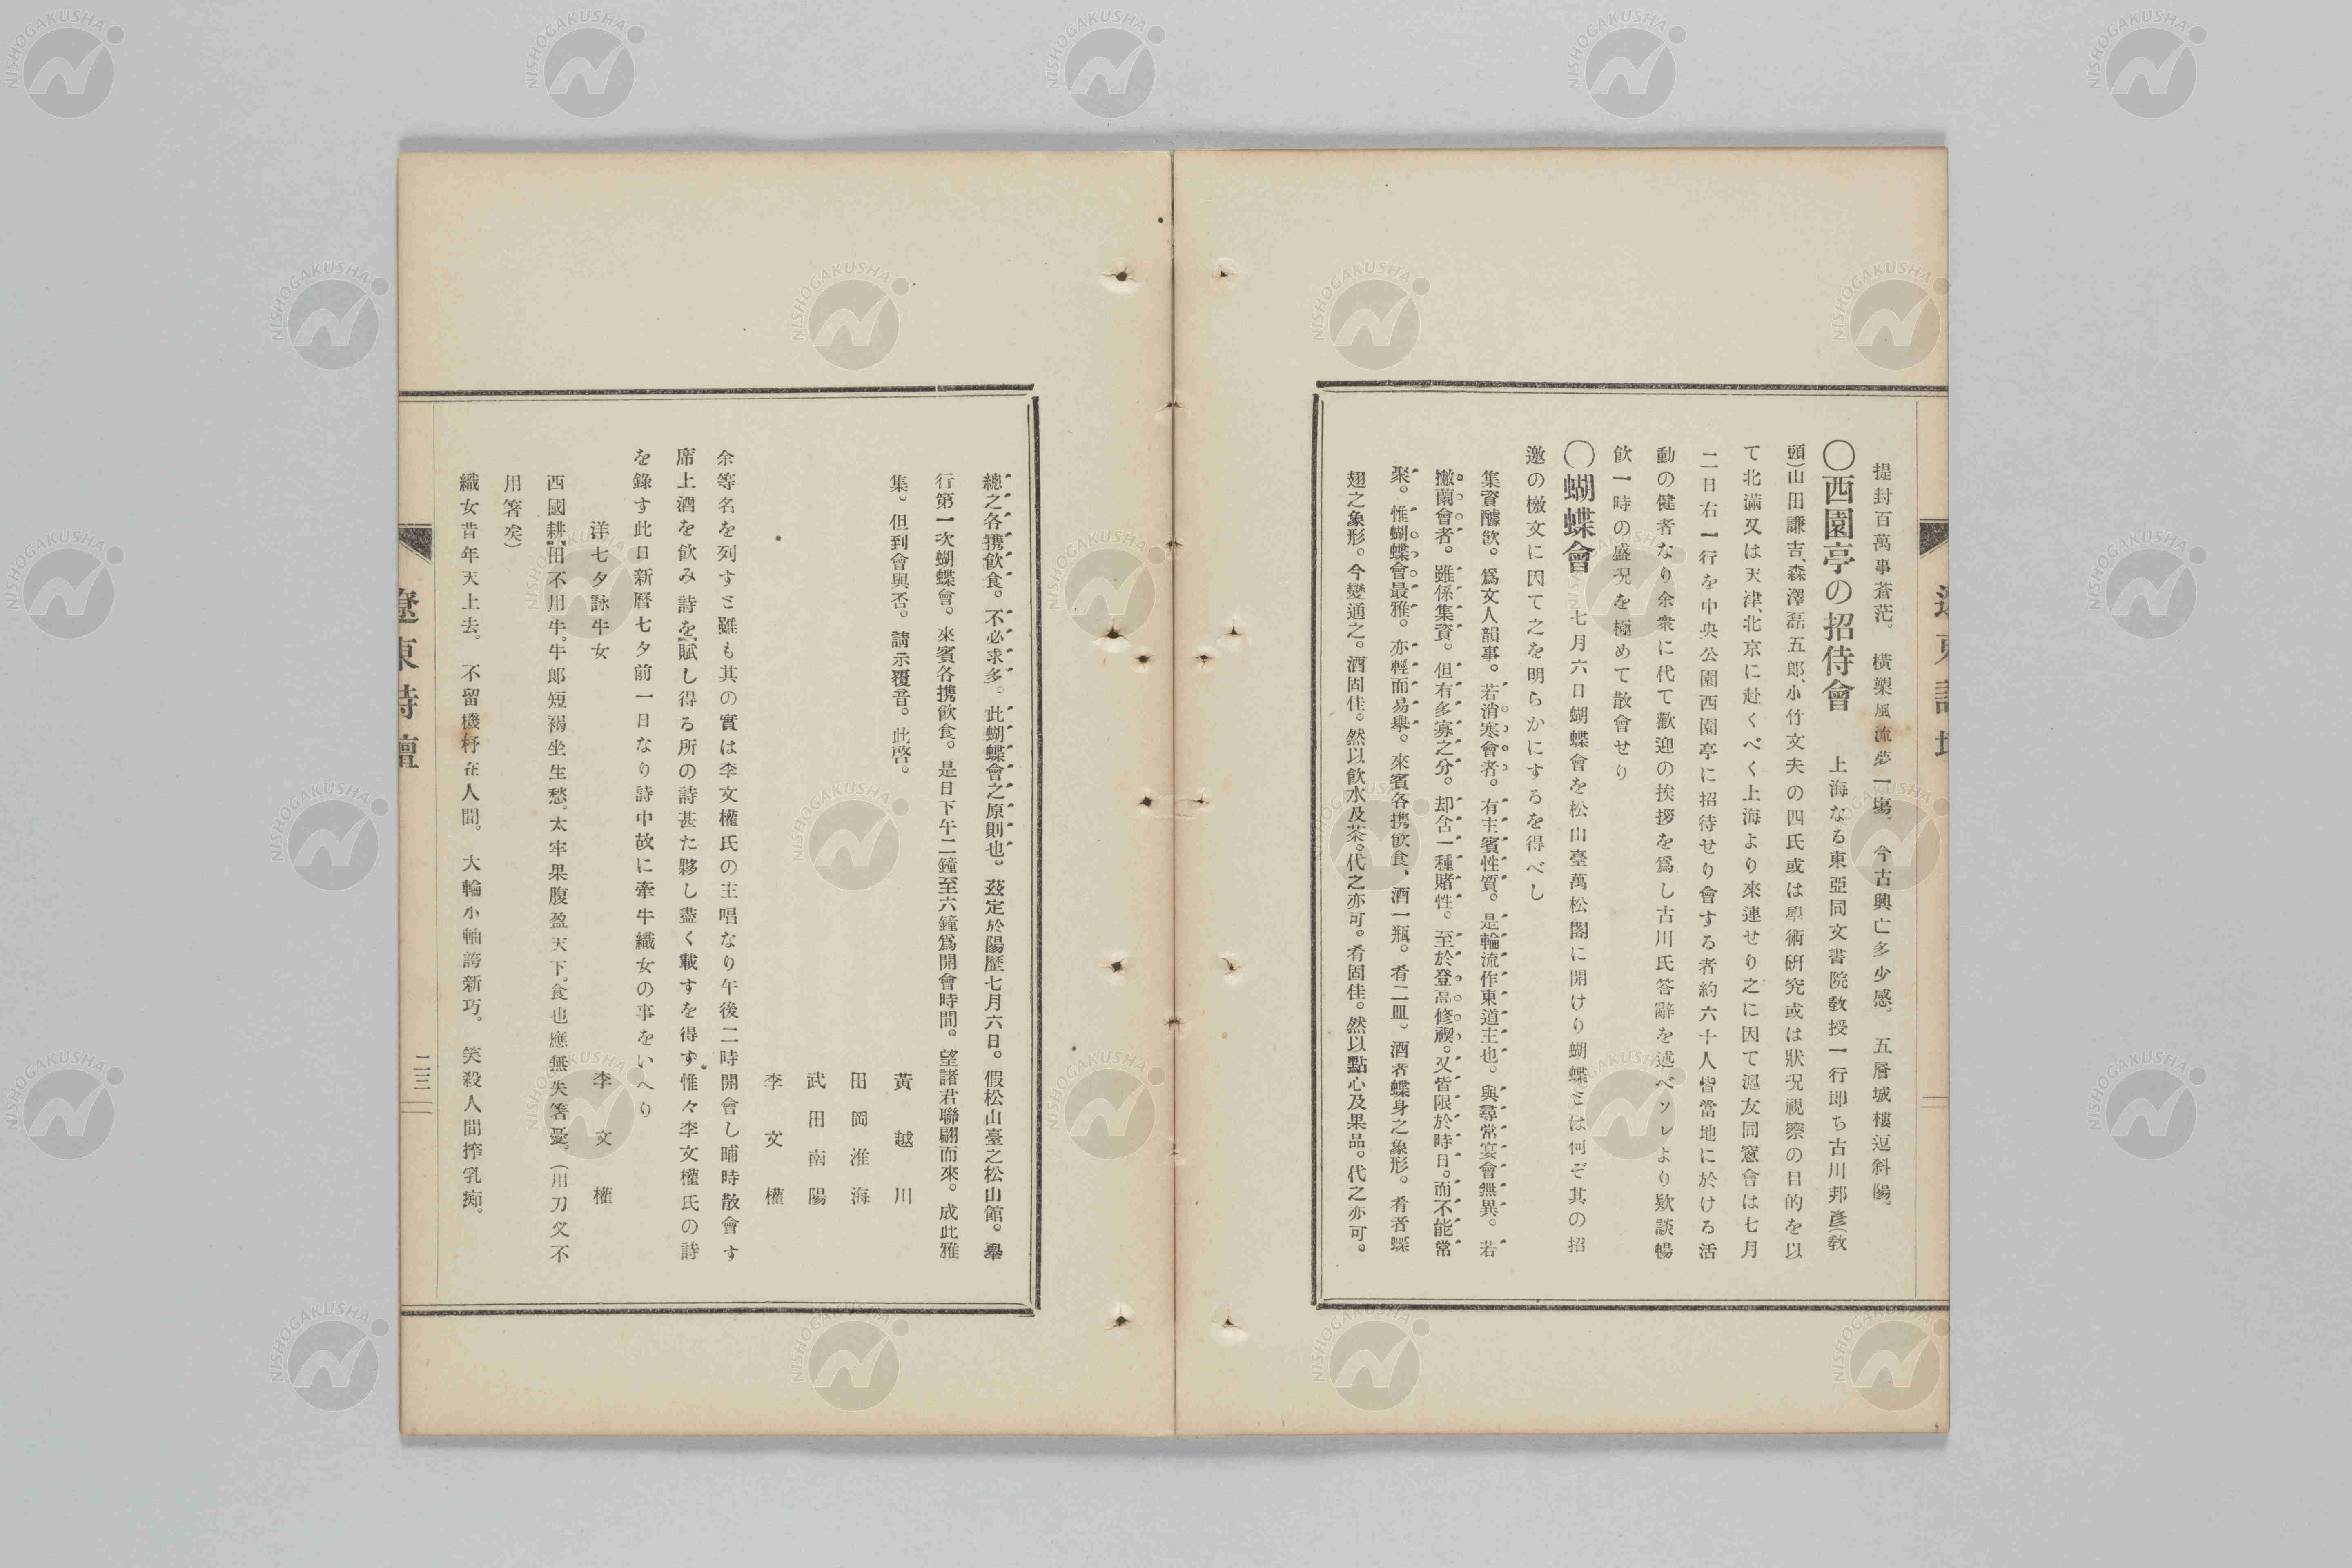 提封百萬事蒼茫。　橫槊風流夢一場。　今古興亡多少感。　五層城樓逗斜陽。
〇西園亭の招待會　上海なる東亞同文書院敎授一行即ち古川邦彥(敎
頭)山田謙吉、森澤磊五郎、小竹文夫の四氏或は學術研究或は狀況視察の目的を以
て北滿又は天津、北京に赴くべく上海より來連せり之に因て滬友同窓會は七月
二日右一行を中央公園西園亭に招待せり會する者約六十人皆當地に於ける活
動の健者なり余衆に代て歡迎の挨拶を爲し古川氏答辭を述べソレより欵談暢
飮一時の盛況を極めて散會せり
〇蝴蝶會　七月六日蝴蝶會を松山臺萬松閣に開けり蝴蝶とは何ぞ其の招
邀の檄文に因て之を明らかにするを得べし
集資醵飮。爲文人韻事。若消寒會者。有主賓性質。是輪流作東道主也。與尋常宴會無異。若
撇蘭會者。雖係集資。但有多寡之分。却含一種賭性。至於登高修禊。又皆限於時日。而不能常
聚。惟蝴蝶會最雅。亦輕而易舉。來賓各携飮食、酒一瓶。肴二皿。酒者蝶身之象形。肴者蝶
翅之象形。今變通之。酒固佳。然以飮水及茶。代之亦可。肴固佳。然以點心及果品。代之亦可。
總之各携飮食。不必求多。此蝴蝶會之原則也。茲定於陽歷七月六日。假松山臺之松山館。舉
行第一次蝴蝶會。來賓各携飮食。是日下午二鐘至六鐘爲開會時間。望諸君聯翩而來。成此雅
集。但到會與否。請示覆音。此啓。
黃越川
田岡淮海
武田南陽
李文權
余等名を列すと雖も其の實は李文權氏の主唱なり午後二時開會し晡時散會す
席上酒を飮み詩を賦し得る所の詩甚た夥し盡く載すを得ず惟々李文權氏の詩
を錄す此日新曆七夕前一日なり詩中故に牽牛織女の事をいへり
洋七夕詠牛女　李文權
西國耕田不用牛。牛郎短褐坐生愁。太牢果腹盈天下。食也應無失箸憂。(用刀叉不
用箸矣)
織女昔年天上去。　不留機杼在人間。　大輪小軸誇新巧。　笑殺人間搾乳痴。
遼東詩壇
二三